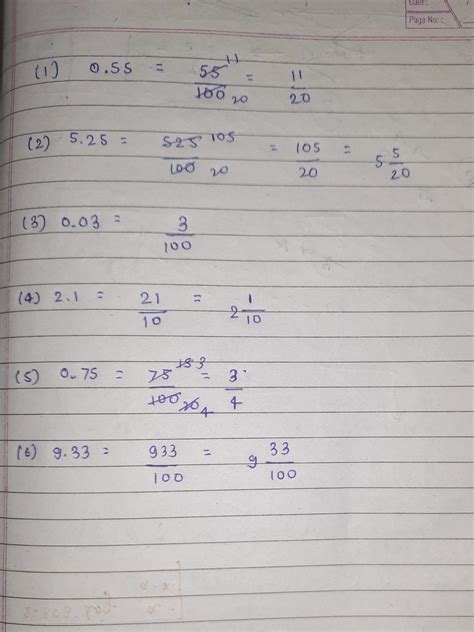 Date:
Page No:
(1) 0.55 = 55/100 11 20 = 11/20
(2) 5.25 = 525/100 105 20 = 105/20 = 5 5/20
(3) 0.03 = 3/100
(4) 2.1 = 21/10 = 2 1/10
(5) 0.75 = 75/100 15 3 20 4 = 3/4
(6) 9.33 = 933/100 = 9 33/100